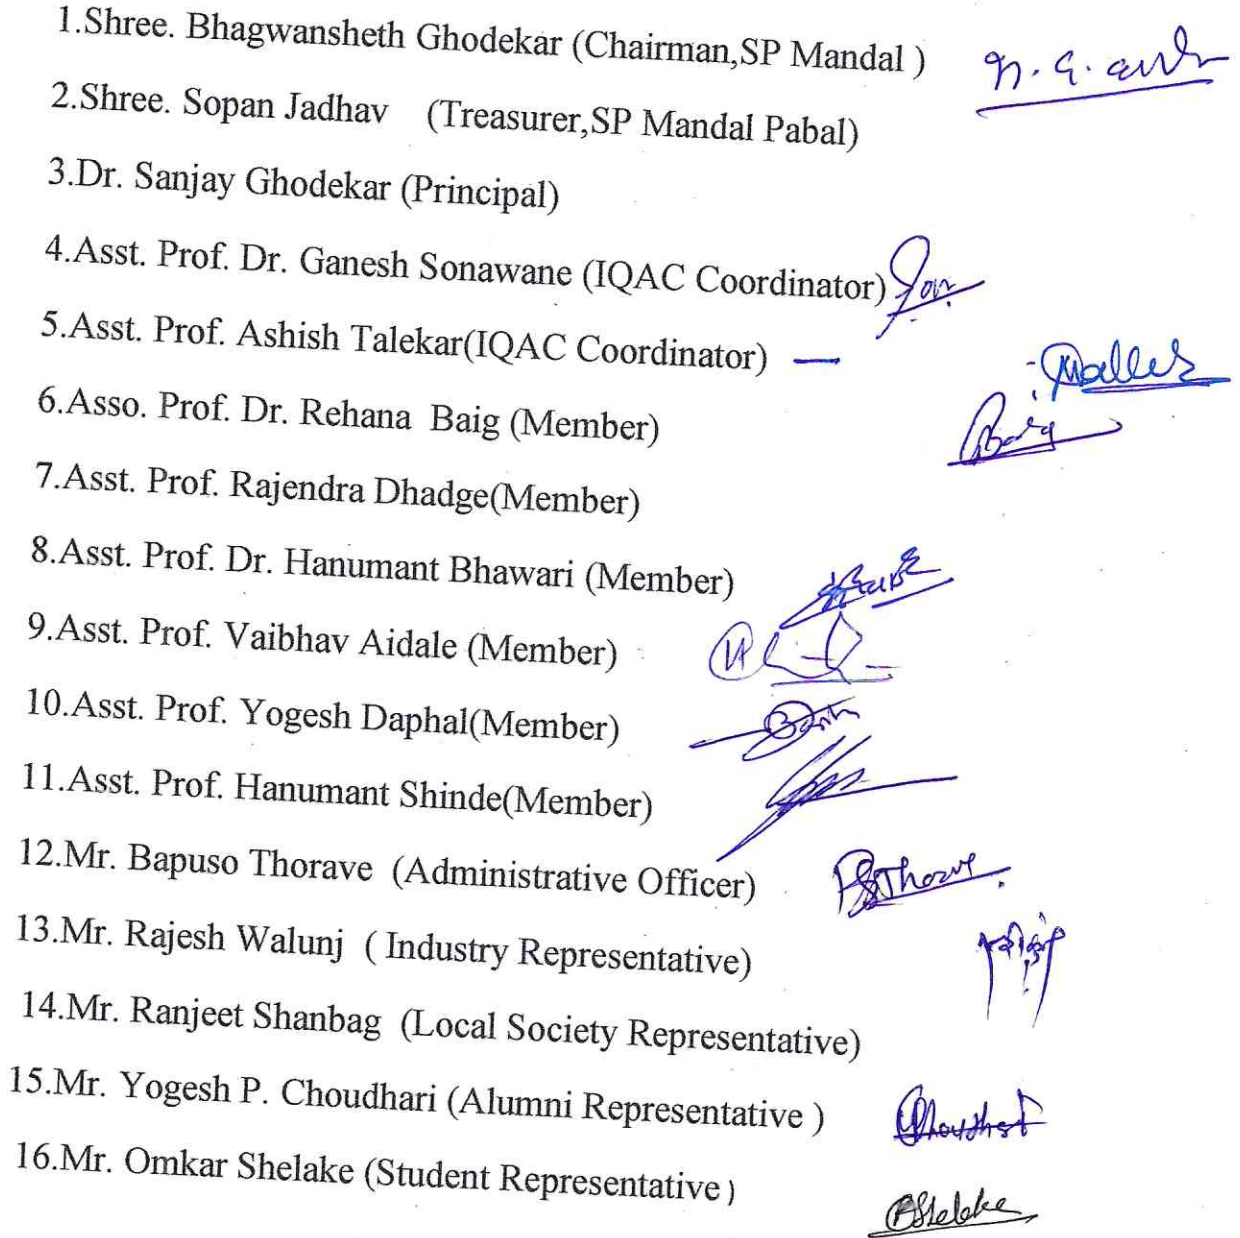 1.Shree. Bhagwansheth Ghodekar (Chairman,SP Mandal )
2.Shree. Sopan Jadhav (Treasurer,SP Mandal Pabal)
3.Dr. Sanjay Ghodekar (Principal)
4.Asst. Prof. Dr. Ganesh Sonawane (IQAC Coordinator)
5.Asst. Prof. Ashish Talekar(IQAC Coordinator) —
6.Asso. Prof. Dr. Rehana Baig (Member)
7.Asst. Prof. Rajendra Dhadge(Member)
8.Asst. Prof. Dr. Hanumant Bhawari (Member)
9.Asst. Prof. Vaibhav Aidale (Member)
10.Asst. Prof. Yogesh Daphal(Member)
11.Asst. Prof. Hanumant Shinde(Member)
12.Mr. Bapuso Thorave (Administrative Officer)
13.Mr. Rajesh Walunj ( Industry Representative)
14.Mr. Ranjeet Shanbag (Local Society Representative)
15.Mr. Yogesh P. Choudhari (Alumni Representative )
16.Mr. Omkar Shelake (Student Representative)